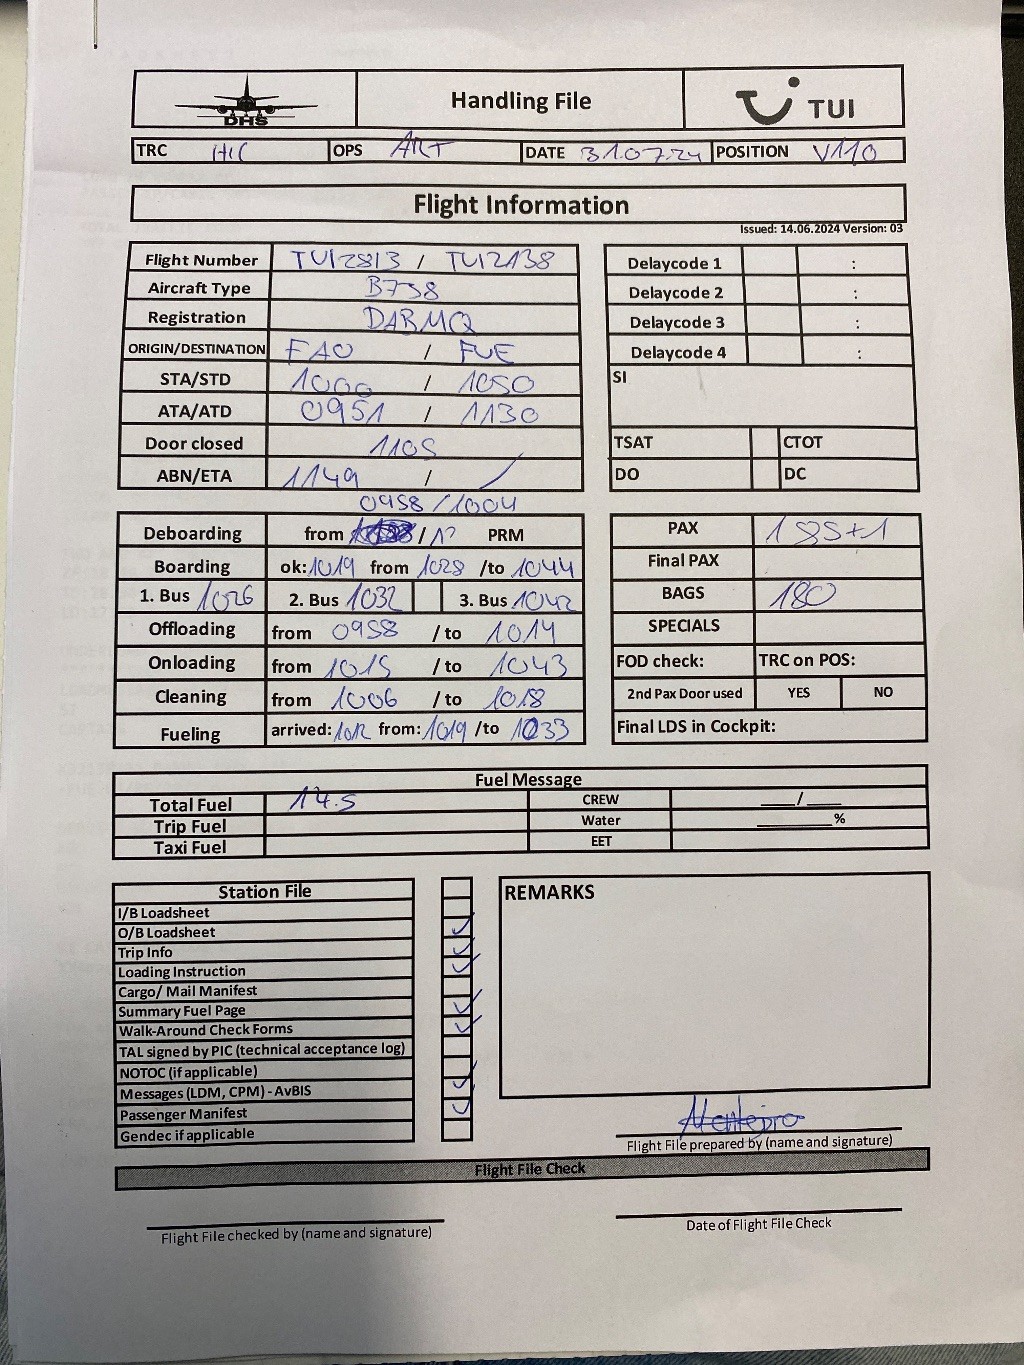 DHS
Handling File
TUI
TRC HIC OPS ART DATE 31.07.24 POSITION V110
Flight Information
Issued: 14.06.2024 Version: 03
Flight Number TUI2813 / TUI2138
Aircraft Type B738
Registration DABMQ
ORIGIN/DESTINATION FAO / FUE
STA/STD 1000 / 1050
ATA/ATD 0951 / 1130
Door closed 1105
ABN/ETA 1149 /
Delaycode 1 :
Delaycode 2 :
Delaycode 3 :
Delaycode 4 :
SI
TSAT CTOT
DO DC
0958 / 1004
Deboarding from / PRM
Boarding ok: 1019 from 1028 /to 1044
1. Bus 1026 2. Bus 1032 3. Bus 1042
Offloading from 0958 / to 1014
Onloading from 1015 / to 1043
Cleaning from 1006 / to 1018
Fueling arrived: 1012 from: 1019 /to 1033
PAX 185+1
Final PAX
BAGS 180
SPECIALS
FOD check: TRC on POS:
2nd Pax Door used YES NO
Final LDS in Cockpit:
Fuel Message
Total Fuel 14.5 CREW ___/___
Trip Fuel Water ______%
Taxi Fuel EET
Station File
I/B Loadsheet
O/B Loadsheet
Trip Info
Loading Instruction
Cargo/ Mail Manifest
Summary Fuel Page
Walk-Around Check Forms
TAL signed by PIC (technical acceptance log)
NOTOC (if applicable)
Messages (LDM, CPM) - AvBIS
Passenger Manifest
Gendec if applicable
REMARKS
Monteiro
Flight File prepared by (name and signature)
Flight File Check
Flight File checked by (name and signature)
Date of Flight File Check